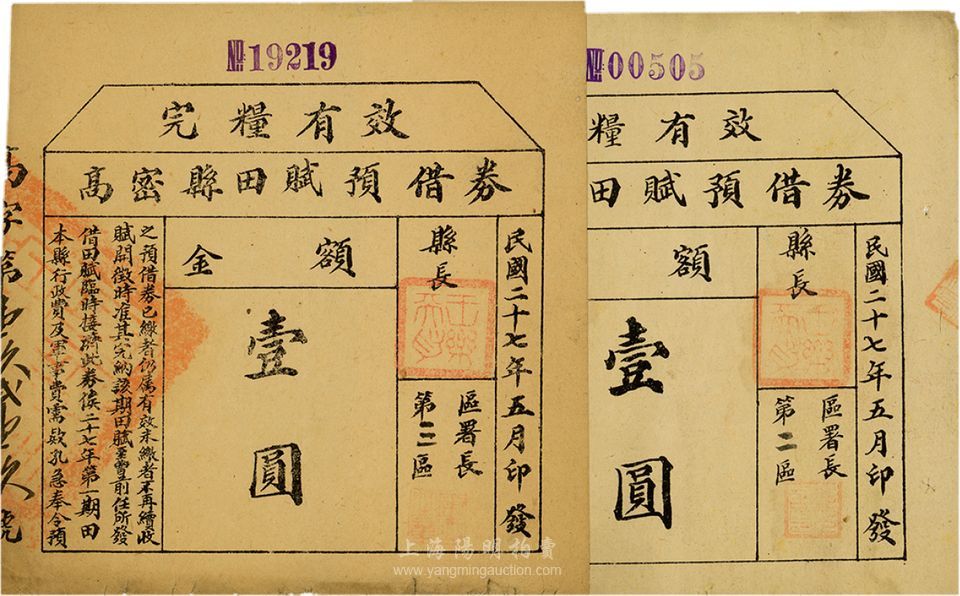 №19219
完糧有效
高密縣田賦預借券
民國二十七年五月印發
縣長
區署長
第三區
金額
壹圓
本縣行政費及軍事費需欵孔急奉令預
借田賦臨時接濟此券俟二十七年第一期田
賦開徵時准其完納該期田賦至曹前任所發
之預借券已繳者仍属有效未繳者不再續收
№00505
糧有效
田賦預借券
民國二十七年五月印發
縣長
區署長
第二區
額
壹圓
上海陽明拍賣
www.yangmingauction.com